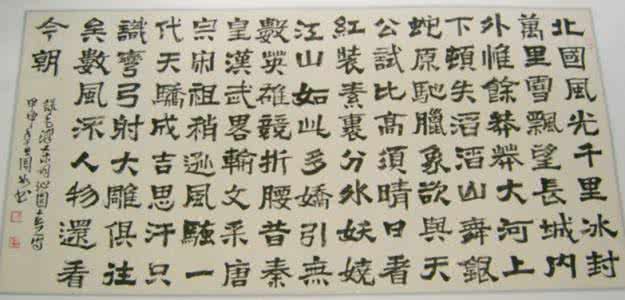 北國風光千里冰封
萬里雪飄望長城內
外惟餘莽莽大河上
下頓失滔滔山舞銀
蛇原馳臘象欲與天
公試比高須晴日看
紅裝素裹分外妖嬈
江山如此多嬌引無
數英雄競折腰昔秦
皇漢武畧輸文采唐
宗宋祖稍遜風騷一
代天驕成吉思汗只
識彎弓射大雕俱往
矣數風流人物還看
今朝
甲申